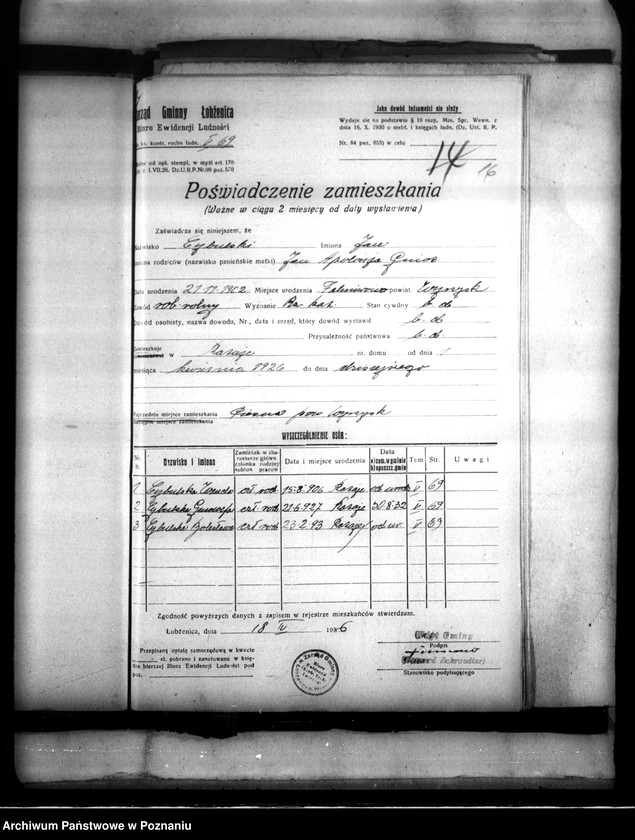 Zarząd Gminny Łobżenica
Biuro Ewidencji Ludności
ks. kontr. ruchu ludn. V/69
od opł. stempl. w myśl art. 170
z 1.VII.26. Dz.U.R.P. Nr. 98 poz. 570
Jako dowód tożsamości nie służy
Wydaje się na podstawie § 10 rozp. Min. Spr. Wewn. z
dnia 16. X. 1930 o meld. i księgach ludn. (Dz. Ust. R. P.
Nr. 84 poz. 653) w celu
14
16
Poświadczenie zamieszkania
(Ważne w ciągu 2 miesięcy od daty wystawienia)
Zaświadcza się niniejszem, że
Nazwisko Cybulski Imiona Jan
Imiona rodziców (nazwisko panieńskie matki) Jan Apolonja
Data urodzenia 21.11.1902 Miejsce urodzenia powiat Wyrzysk
Zawód rob. rolny Wyznanie Rz. kat. Stan cywilny
Dowód osobisty, nazwa dowodu, Nr., data i urząd, który dowód wystawił b. d.
Przynależność państwowa b. d.
Zamieszkuje w Rataje nr. domu od dnia 1
miesiąca kwietnia 1926 do dnia dzisiejszego
Poprzednie miejsce zamieszkania pow. Wyrzysk
Następne miejsce zamieszkania
WYSZCZEGÓLNIENIE OSÓB:
Nr. b. Nazwisko i imiona Zamieszk. w charakterze główn. członka rodziny sublok. pracow. Data i miejsce urodzenia Data a) zam. w gminie b) opuszcz. gmin Tom Str. Uwagi
1 Cybulska czł. rodz. Rataje od urodz. V 69
2 Cybulska czł. rodz. 21.6.927 Rataje 20.8.32 V 69
3 Cybulska czł. rodz. Rataje od ur. V 69
Zgodność powyższych danych z zapisem w rejestrze mieszkańców stwierdzam.
Łobżenica, dnia 18 IV 1936
Przepisaną opłatę samorządową w kwocie
zł. pobrano i zanotowano w księ-
dze bierczej Biura Ewidencji Ludności pod
poz.
Wójt Gminy
Podpis
Stanowisko podpisującego
Archiwum Państwowe w Poznaniu